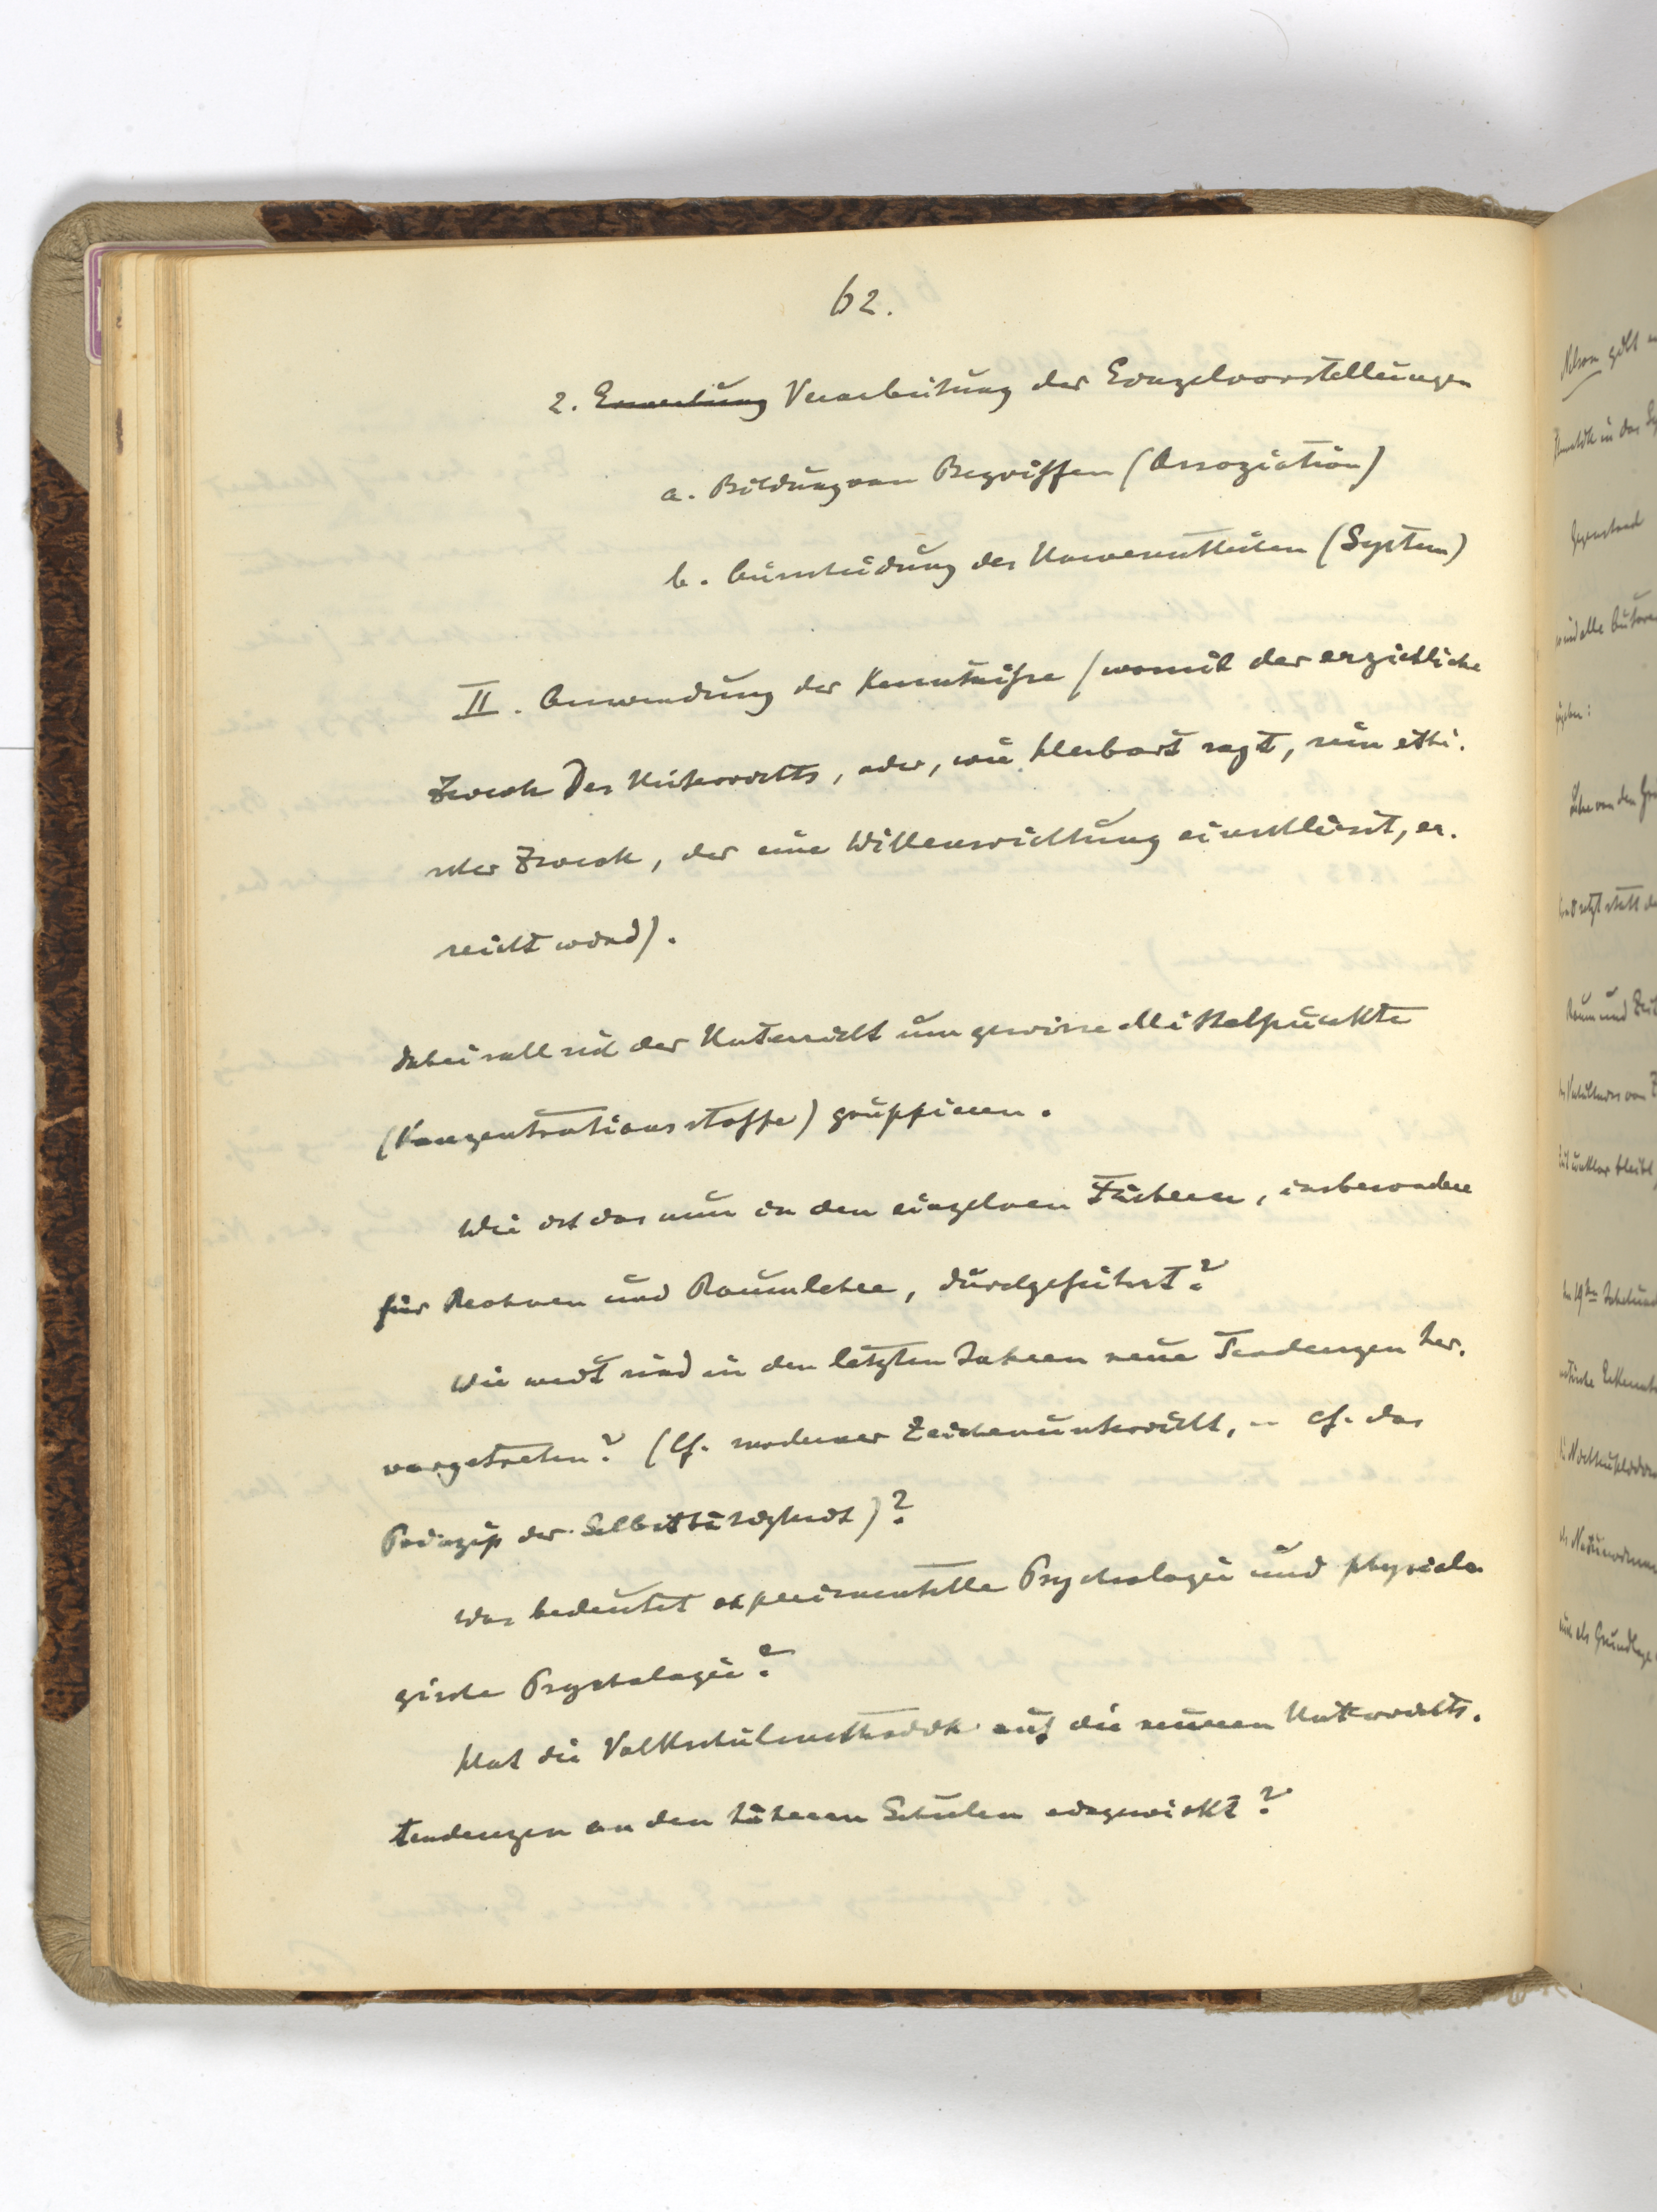 62.
2. Erwerbung Verarbeitung der Einzelvorstellungen
a. Bildung von Begriffen (Assoziation)
b. Ausscheidung des Unwesentlichen (System)
II. Anwendung der Kenntnisse (womit der erziehliche
Zweck des Unterrichts, oder, wie Herbart sagt, sein ethi-
scher Zweck, der eine Willensrichtung einschliesst, er-
reicht wird).
Dabei soll sich der Unterricht um gewisse Mittelpunkte
(Konzentrationsstoffe) gruppieren.
Wie ist das nun in den einzelnen Fächern, insbesondere
für Rechnen und Raumlehre, durchgeführt?
Wie weit sind in den letzten Jahren neue Tendenzen her-
vorgetreten? (Cf. moderner Zeichenunterricht, – cf. das
Prinzip der Selbsttätigkeit)?
Was bedeutet experimentelle Psychologie und physiolo-
gische Psychologie?
Hat die Volksschulmethodik auf die neueren Unterrichts-
tendenzen an den höheren Schulen eingewirkt?
Nelson gibt
Gegenstand
sind alle Autoren
Lehre von den
Raum und Zeit
als Grundlage